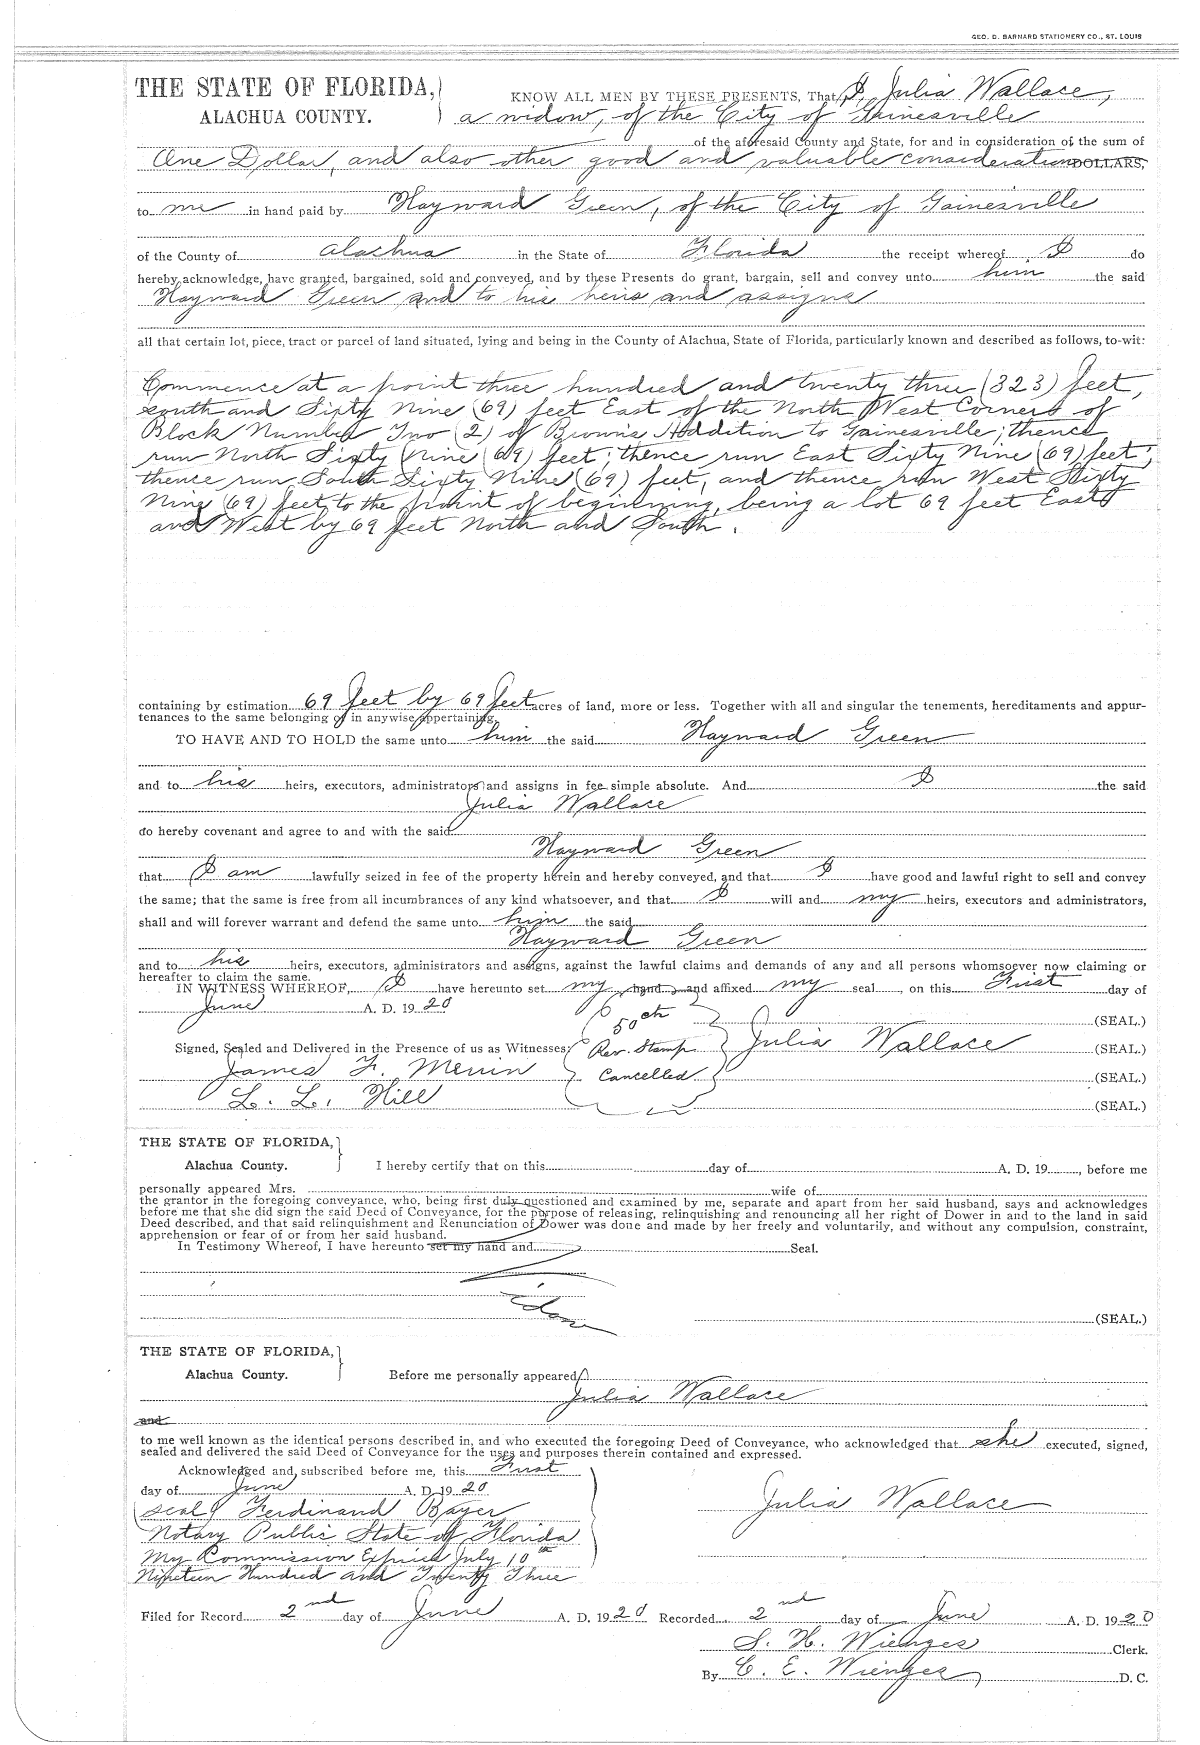 GEO. D. BARNARD STATIONERY CO., ST. LOUIS
THE STATE OF FLORIDA,
ALACHUA COUNTY.
KNOW ALL MEN BY THESE PRESENTS, That I, Julia Wallace,
a widow, of the City of Gainesville
of the aforesaid County and State, for and in consideration of the sum of
One Dollar, and also other good and valuable consideration DOLLARS,
to me in hand paid by Hayward Green, of the City of Gainesville
of the County of Alachua in the State of Florida the receipt whereof I do
hereby acknowledge, have granted, bargained, sold and conveyed, and by these Presents do grant, bargain, sell and convey unto him the said
Hayward Green and to his heirs and assigns
all that certain lot, piece, tract or parcel of land situated, lying and being in the County of Alachua, State of Florida, particularly known and described as follows, to-wit:
Commence at a point three hundred and twenty three (323) feet,
south and Sixty Nine (69) feet East of the North West Corners of
Block Number Two (2) of Brown's Addition to Gainesville; thence
run North Sixty Nine (69) feet; thence run East Sixty Nine (69) feet;
thence run South Sixty Nine (69) feet, and thence run West Sixty
Nine (69) feet to the point of beginning, being a lot 69 feet East
and West by 69 feet North and South.
containing by estimation 69 feet by 69 feet acres of land, more or less. Together with all and singular the tenements, hereditaments and appur-
tenances to the same belonging or in anywise appertaining.
TO HAVE AND TO HOLD the same unto him the said Hayward Green
and to his heirs, executors, administrators and assigns in fee simple absolute. And I the said
Julia Wallace
do hereby covenant and agree to and with the said
Hayward Green
that I am lawfully seized in fee of the property herein and hereby conveyed, and that I have good and lawful right to sell and convey
the same; that the same is free from all incumbrances of any kind whatsoever, and that I will and my heirs, executors and administrators,
shall and will forever warrant and defend the same unto him the said
Hayward Green
and to his heirs, executors, administrators and assigns, against the lawful claims and demands of any and all persons whomsoever now claiming or
hereafter to claim the same.
IN WITNESS WHEREOF, I have hereunto set my hand and affixed my seal, on this First day of
June A. D. 1920
50 cts (SEAL.)
Signed, Sealed and Delivered in the Presence of us as Witnesses: Rev. Stamp Julia Wallace (SEAL.)
James F. Merrin Cancelled (SEAL.)
L. L. Hill (SEAL.)
THE STATE OF FLORIDA,
Alachua County. I hereby certify that on this day of A. D. 19 , before me
personally appeared Mrs. wife of
the grantor in the foregoing conveyance, who, being first duly questioned and examined by me, separate and apart from her said husband, says and acknowledges
before me that she did sign the said Deed of Conveyance, for the purpose of releasing, relinquishing and renouncing all her right of Dower in and to the land in said
Deed described, and that said relinquishment and Renunciation of Dower was done and made by her freely and voluntarily, and without any compulsion, constraint,
apprehension or fear of or from her said husband.
In Testimony Whereof, I have hereunto set my hand and Seal.
(SEAL.)
THE STATE OF FLORIDA,
Alachua County. Before me personally appeared
Julia Wallace
and
to me well known as the identical persons described in, and who executed the foregoing Deed of Conveyance, who acknowledged that she executed, signed,
sealed and delivered the said Deed of Conveyance for the uses and purposes therein contained and expressed.
Acknowledged and subscribed before me, this First
day of June A. D. 1920
(seal) Ferdinand Bayer Julia Wallace
Notary Public State of Florida
My Commission Expires July 10th
Nineteen Hundred and Twenty Three
Filed for Record 2nd day of June A. D. 1920 Recorded 2nd day of June A. D. 1920
S. H. Wienges Clerk.
By C. E. Wienges D. C.